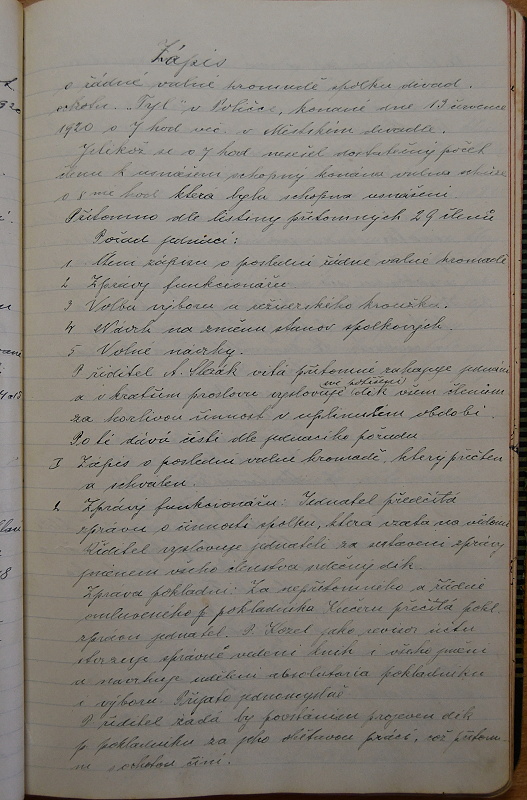 Zápis
o řádné valné hromadě spolku divad.
ochotn. "Tyl" v Poličce, konané dne 13 července
1920 o 7 hod več. v Městském divadle.
Jelikož se o 7 hod nesešel dostatečný počet
členů k usnášení schopný konána valná schůze
o 8 mé hod která byla schopna usnášení
Přítomno dle listiny přítomných 29 členů
Pořad jednací:
1. Čtení zápisu o poslední řádné valné hromadě
2 Zprávy funkcionářů.
3 Volba výboru a režisérského kroužku.
4 Návrh na změnu stanov spolkových.
5 Volné návrhy.
P. ředitel A. vítá přítomné zahajuje jednání
a v kratším proslovu vyslovuje dík všem členům
za horlivou činnost v uplynulém období.
Po té dává čísti dle jednacího pořadu
I Zápis o poslední valné hromadě, který přečten
a schválen.
2. Zprávy funkcionářů: Jednatel předčítá
zprávu o činnosti spolku, která vzata na vědomí
Ředitel vyslovuje jednateli za sestavení zprávy
jménem všeho členstva vděčný dík.
Zpráva pokladní: Za nepřítomného a řádně
omluveného p pokladníka přečítá pokl.
zprávu jednatel. P. Kozel jako revisor účtů
stvrzuje správné vedení knih i všeho jmění
a navrhuje udělení absolutoria pokladníku
i výboru. Přijato jednomyslně
P. ředitel žádá by povstáním projeven dík
p pokladníku za jeho obětavou práci, což přítom.
ní s ochotou činí.